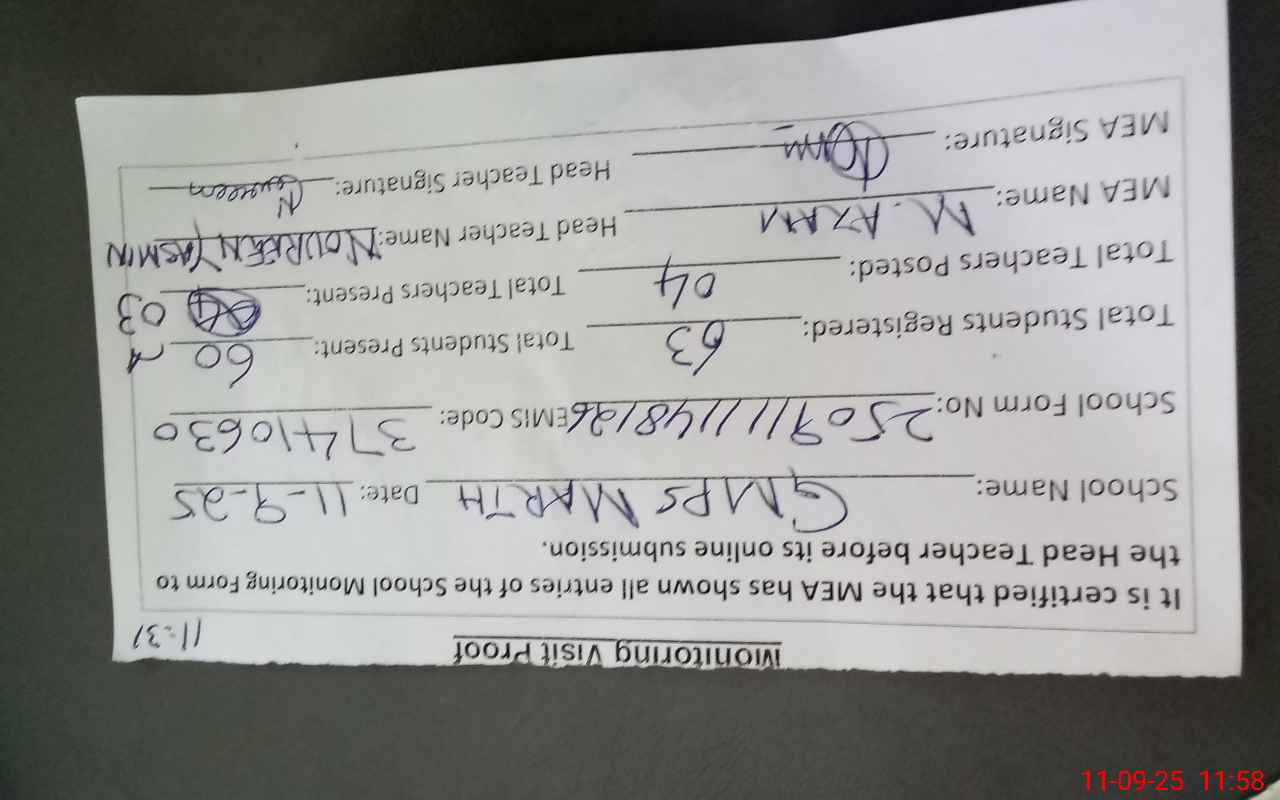 Monitoring Visit Proof 11:31
It is certified that the MEA has shown all entries of the School Monitoring Form to
the Head Teacher before its online submission.
School Name: GMPS MARTH Date: 11-9-25
School Form No: 2509111148126 EMIS Code: 37410630
Total Students Registered: 63 Total Students Present: 60
Total Teachers Posted: 04 Total Teachers Present: 03
MEA Name: M. AZAM Head Teacher Name: NOUREEN YASMIN
MEA Signature: Head Teacher Signature:
11-09-25 11:58